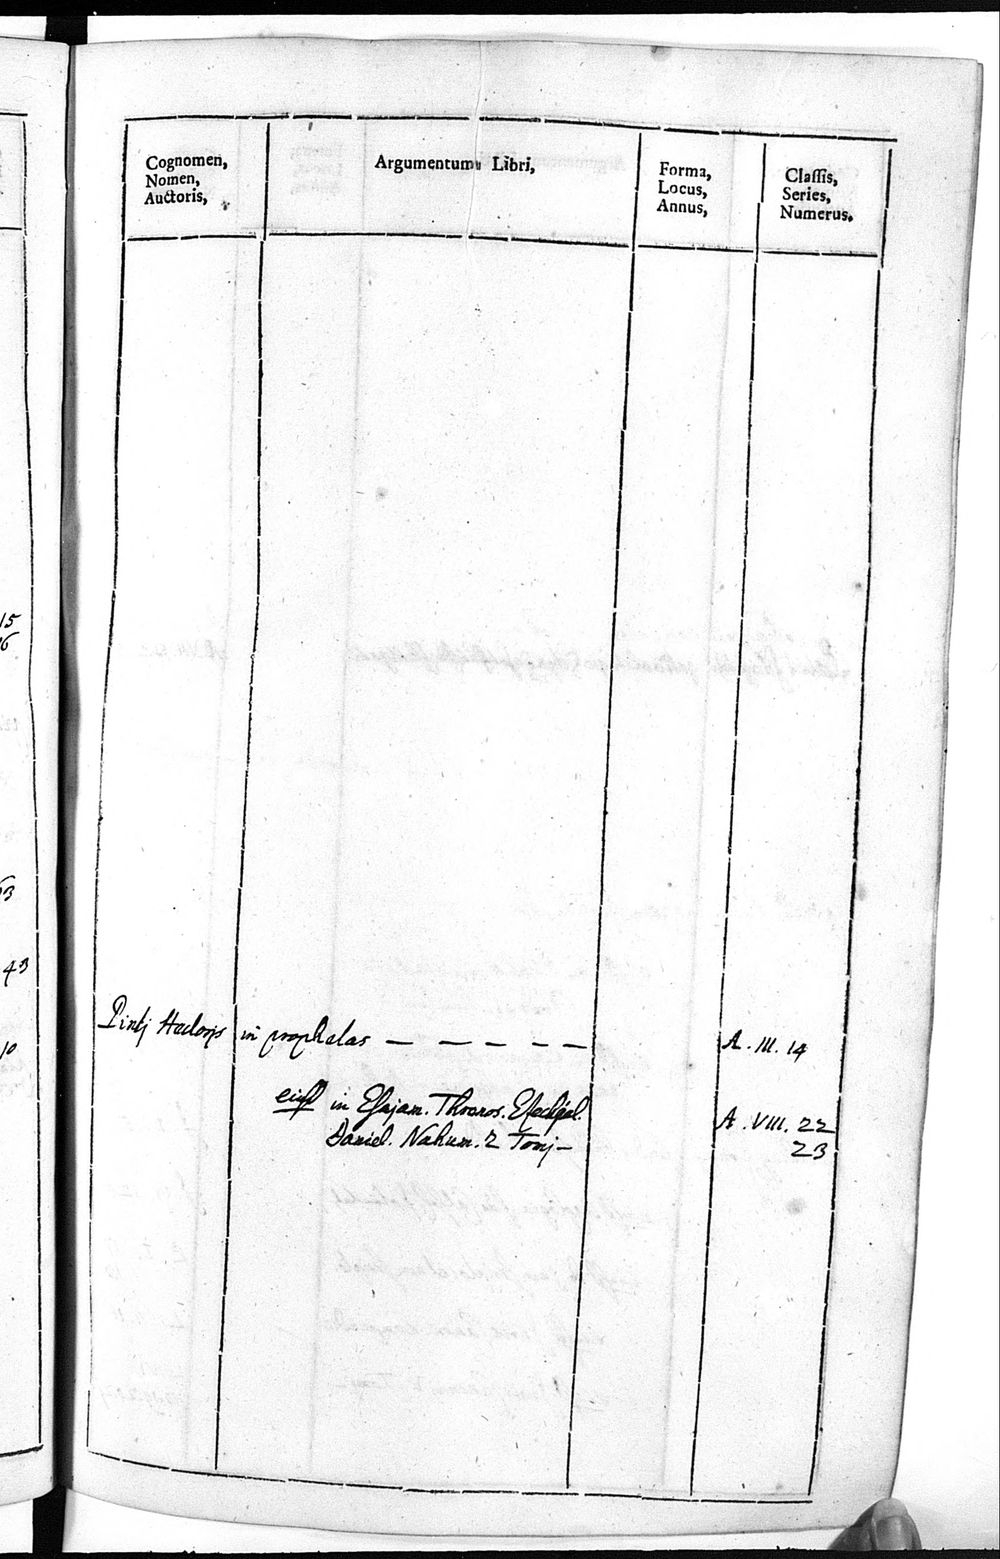 Cognomen,
Nomen,
Auctoris,
Argumentum Libri,
Forma,
Locus,
Annus,
Classis,
Series,
Numerus.
15
6
3
43
10
Pintj Hectoris in prophetas — — — — — A. III. 14
eiusd in Esajam. Threnos. Esechjel. A. VIII. 22
Daniel. Nahum. 2 Tomj — 23